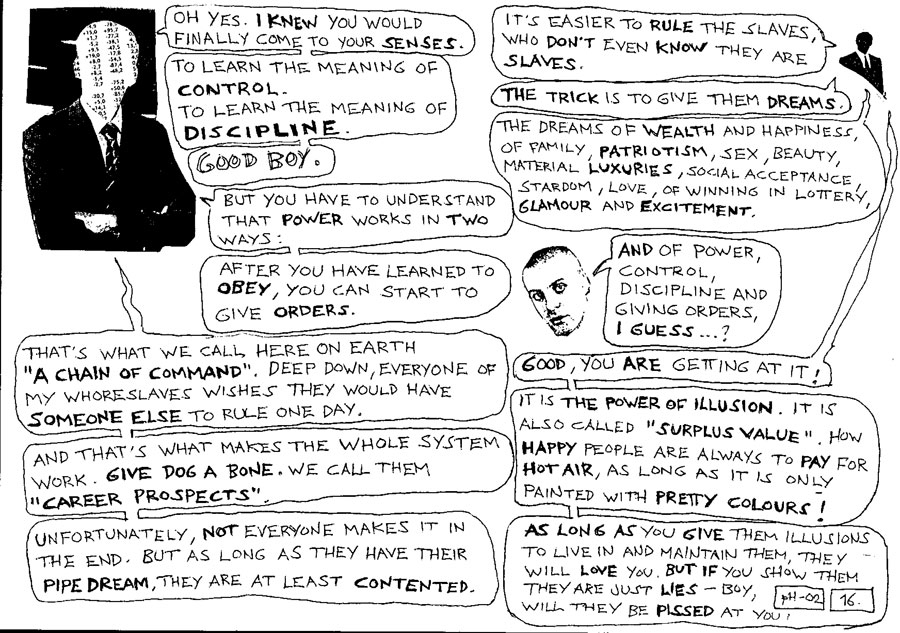 OH YES. I KNEW YOU WOULD
FINALLY COME TO YOUR SENSES.
TO LEARN THE MEANING OF
CONTROL.
TO LEARN THE MEANING OF
DISCIPLINE.
GOOD BOY.
BUT YOU HAVE TO UNDERSTAND
THAT POWER WORKS IN TWO
WAYS:
AFTER YOU HAVE LEARNED TO
OBEY, YOU CAN START TO
GIVE ORDERS.
THAT'S WHAT WE CALL HERE ON EARTH
"A CHAIN OF COMMAND". DEEP DOWN, EVERYONE OF
MY WHORESLAVES WISHES THEY WOULD HAVE
SOMEONE ELSE TO RULE ONE DAY.
AND THAT'S WHAT MAKES THE WHOLE SYSTEM
WORK. GIVE DOG A BONE. WE CALL THEM
"CAREER PROSPECTS".
UNFORTUNATELY, NOT EVERYONE MAKES IT IN
THE END. BUT AS LONG AS THEY HAVE THEIR
PIPE DREAM, THEY ARE AT LEAST CONTENTED.
IT'S EASIER TO RULE THE SLAVES,
WHO DON'T EVEN KNOW THEY ARE
SLAVES.
THE TRICK IS TO GIVE THEM DREAMS.
THE DREAMS OF WEALTH AND HAPPINESS,
OF FAMILY, PATRIOTISM, SEX, BEAUTY,
MATERIAL LUXURIES, SOCIAL ACCEPTANCE,
STARDOM, LOVE, OF WINNING IN LOTTERY,
GLAMOUR AND EXCITEMENT.
AND OF POWER,
CONTROL,
DISCIPLINE AND
GIVING ORDERS,
I GUESS...?
GOOD, YOU ARE GETTING AT IT!
IT IS THE POWER OF ILLUSION. IT IS
ALSO CALLED "SURPLUS VALUE". HOW
HAPPY PEOPLE ARE ALWAYS TO PAY FOR
HOT AIR, AS LONG AS IT IS ONLY
PAINTED WITH PRETTY COLOURS!
AS LONG AS YOU GIVE THEM ILLUSIONS
TO LIVE IN AND MAINTAIN THEM, THEY
WILL LOVE YOU. BUT IF YOU SHOW THEM
THEY ARE JUST LIES – BOY,
WILL THEY BE PISSED AT YOU!
pH-02 16.